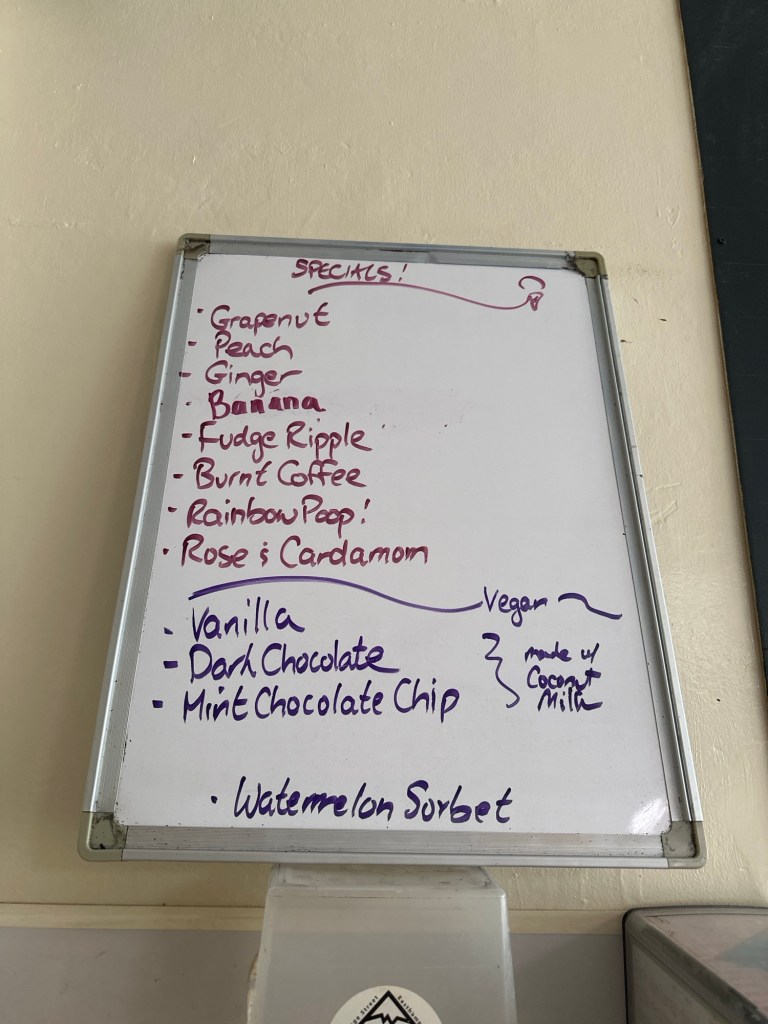 SPECIALS!
· Grapenut
- Peach
- Ginger
· Banana
- Fudge Ripple
- Burnt Coffee
· Rainbow Poop!
· Rose & Cardamom
Vegan
- Vanilla
- Dark Chocolate
- Mint Chocolate Chip
made w/
Coconut
Milk
· Watermelon Sorbet
Street